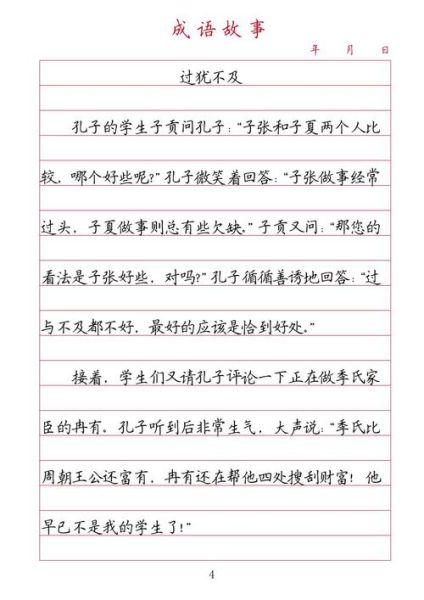 成语故事
年 月 日
过犹不及
孔子的学生子贡问孔子：“子张和子夏两个人比
较，哪个好些呢?”孔子微笑着回答：“子张做事经常
过头，子夏做事则总有些欠缺。”子贡又问：“那您的
看法是子张好些，对吗?”孔子循循善诱地回答：“过
与不及都不好，最好的应该是恰到好处。”
接着，学生们又请孔子评论一下正在做季氏家
臣的冉有。孔子听到后非常生气，大声说：“季氏比
周朝王公还富有，冉有还在帮他四处搜刮财富！他
早已不是我的学生了!”
4